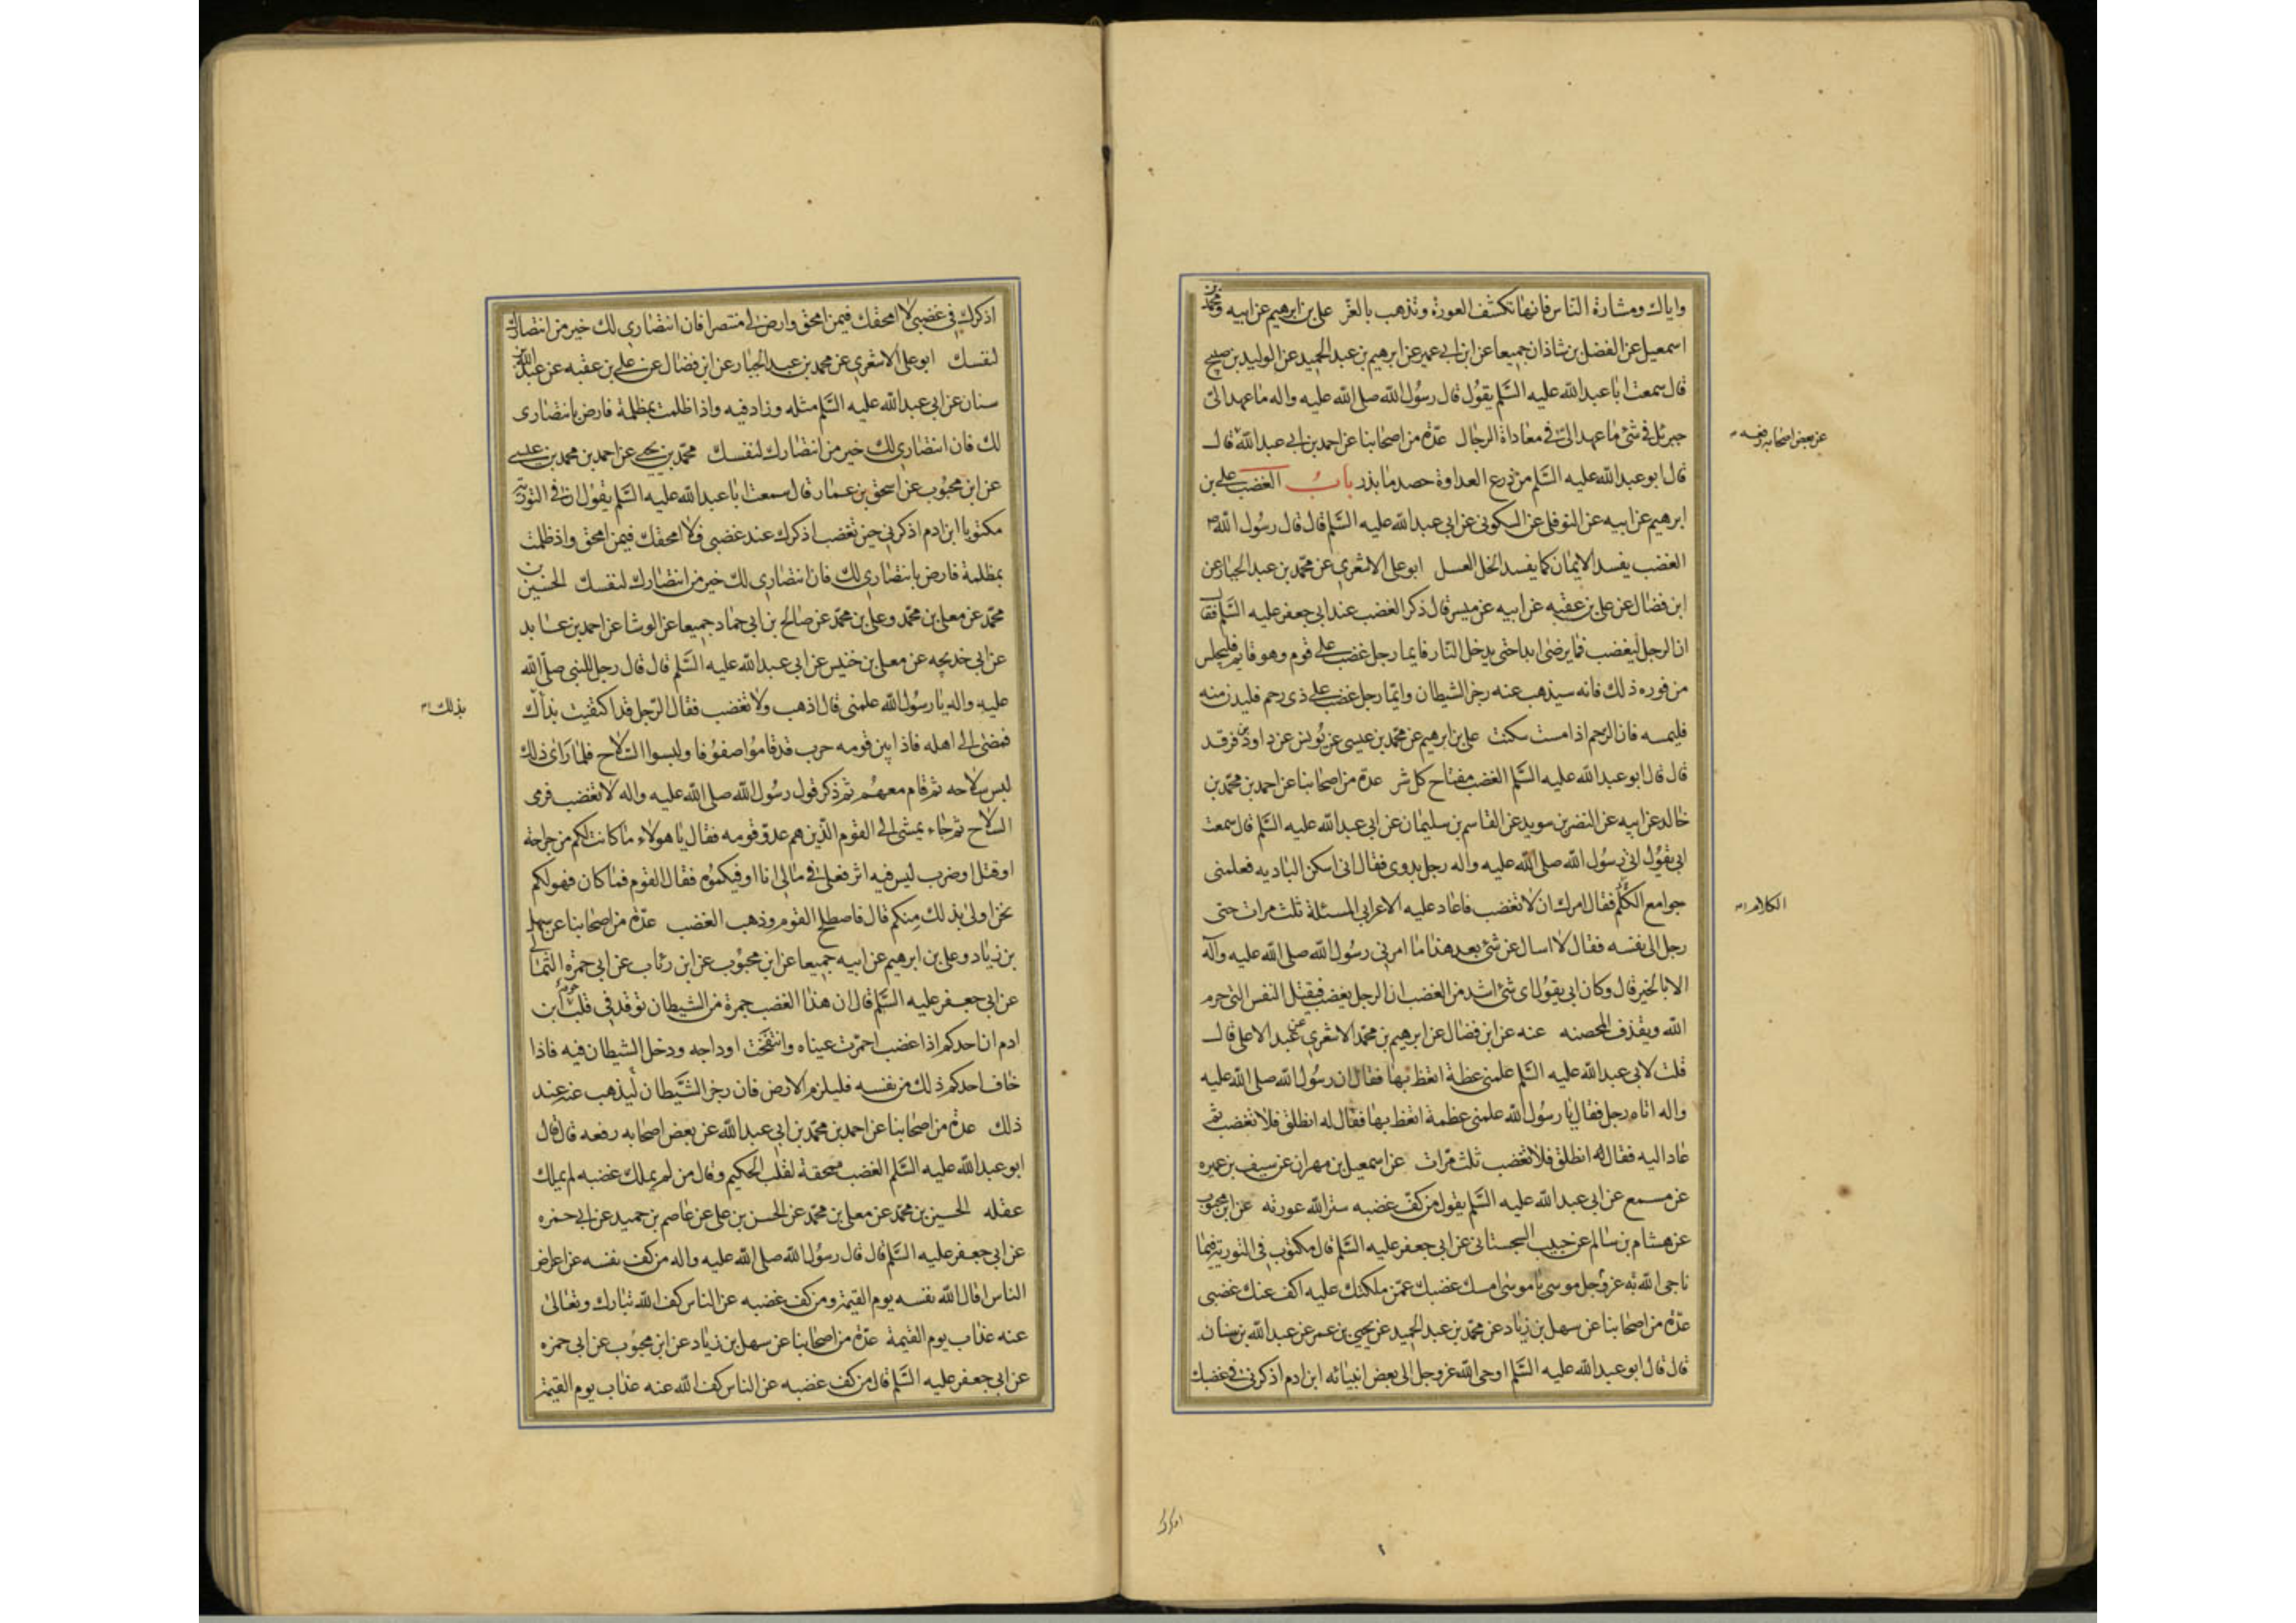 واياك ومشارة الناس فانها تكشف العورة وتذهب بالعز علي بن ابرهيم عن ابيه ومحمد بن
اسمعيل عن الفضل بن شاذان جميعا عن ابن ابي عمير عن ابرهيم بن عبد الحميد عن الوليد بن صبيح
قال سمعت ابا عبد الله عليه السلم يقول قال رسول الله صلى الله عليه واله ما عهد الى
جبرئل فى شئ ما عهد الى فى معاداة الرجال عدة من اصحابنا عن احمد بن ابى عبد الله قال
عن بعض اصحابه رفعه
قال ابو عبد الله عليه السلم من زرع العداوة حصد ما بذر باب الغضب على بن
ابرهيم عن ابيه عن النوفلى عن السكونى عن ابى عبد الله عليه السلم قال قال رسول الله ص
الغضب يفسد الايمان كما يفسد الخل العسل ابو على الاشعرى عن محمد بن عبد الجبار عن
ابن فضال عن على بن عقبه عن ابيه عن ميسر قال ذكر الغضب عند ابى جعفر عليه السلم فقال
ان الرجل ليغضب فما يرضى ابدا حتى يدخل النار فايما رجل غضب على قوم وهو قايم فليجلس
من فوره ذلك فانه سيذهب عنه رجز الشيطان وايما رجل غضب على ذى رحم فليدن منه
فليمسه فان الرحم اذا مست سكنت على بن ابرهيم عن محمد بن عيسى عن يونس عن داود بن فرقد
قال قال ابو عبد الله عليه السلم الغضب مفتاح كل شر عدة من اصحابنا عن احمد بن محمد بن
خالد عن ابيه عن النضر بن سويد عن القاسم بن سليمان عن ابى عبد الله عليه السلم قال سمعت
ابى يقول اتى رسول الله صلى الله عليه واله رجل بدوى فقال انى اسكن الباديه فعلمنى
جوامع الكلم فقال امرك ان لا تغضب فاعاد عليه الاعرابى المسئلة ثلث مرات حتى
الكلام
رجل الى نفسه فقال لا اسال عن شئ بعد هذا ما امرنى رسول الله صلى الله عليه وآله
الا بالخير قال وكان ابى يقول اى شئ اشد من الغضب ان الرجل يغضب فيقتل النفس التى حرم
الله ويقذف المحصنه عنه عن ابن فضال عن ابرهيم بن محمد الاشعرى عن عبد الاعلى قال
قلت لابى عبد الله عليه السلم علمنى عظة اتعظ بها فقال ان رسول الله صلى الله عليه
واله اتاه رجل فقال يا رسول الله علمنى عظمة اتعظ بها فقال له انطلق فلا تغضب ثم
عاد اليه فقال له انطلق فلا تغضب ثلث مرات عن اسمعيل بن مهران عن سيف بن عميره
عن مسمع عن ابى عبد الله عليه السلم يقول من كف غضبه ستر الله عورته عن ابن محبوب
عن هشام بن سالم عن حبيب السجستانى عن ابى جعفر عليه السلم قال مكتوب فى التورية فيما
ناجى الله به عز وجل موسى يا موسى امسك غضبك عمن ملكتك عليه اكف عنك غضبى
عدة من اصحابنا عن سهل بن زياد عن محمد بن عبد الحميد عن يحيى بن عمر عن عبد الله بن سنان
قال قال ابو عبد الله عليه السلم اوحى الله عز وجل الى بعض انبيائه ابن ادم اذكرنى فى غضبك
اذكرك
اذكرك فى غضبى لا امحقك فيمن امحق وارض لى منتصرا فان انتصارى لك خير من انتصارك
لنفسك ابو على الاشعرى عن محمد بن عبد الجبار عن ابن فضال عن على بن عقبه عن عبد الله بن
سنان عن ابى عبد الله عليه السلم مثله وزاد فيه واذا ظلمت بمظلمة فارض بانتصارى
لك فان انتصارى لك خير من انتصارك لنفسك محمد بن يحيى عن احمد بن محمد بن عيسى
عن ابن محبوب عن اسحق بن عمار قال سمعت ابا عبد الله عليه السلم يقول ان فى التورية
مكتوبا يا ابن ادم اذكرنى حين تغضب اذكرك عند غضبى فلا امحقك فيمن امحق واذ ظلمت
بمظلمة فارض بانتصارى لك فان انتصارى لك خير من انتصارك لنفسك الحسين بن
محمد عن معلى بن محمد وعلى بن محمد عن صالح بن ابى حماد جميعا عن الوشا عن احمد بن عايد
عن ابى خديجه عن معلى بن خنيس عن ابى عبد الله عليه السلم قال قال رجل للنبى صلى الله
عليه واله يا رسول الله علمنى قال اذهب ولا تغضب فقال الرجل قد اكتفيت بذاك
بذلك
فمضى الى اهله فاذا بين قومه حرب قد قاموا صفوفا ولبسوا السلاح فلما راى ذلك
لبس سلاحه ثم قام معهم ثم ذكر قول رسول الله صلى الله عليه واله لا تغضب فرمى
السلاح ثم جاء يمشى الى القوم الذين هم عدو قومه فقال يا هولاء ما كانت لكم من جراحة
او قتل او ضرب ليس فيه اثر فعلى فى مالى انا اوفيكموه فقال القوم فما كان فهو لكم
نحن اولى بذلك منكم قال فاصطلح القوم وذهب الغضب عدة من اصحابنا عن سهل
بن زياد وعلى بن ابرهيم عن ابيه جميعا عن ابن محبوب عن ابن رئاب عن ابى حمزه الثمالى
عن ابى جعفر عليه السلم قال ان هذا الغضب جمرة من الشيطان توقد فى قلب ابن
ادم ان احدكم اذا غضب احمرت عيناه وانتفخت اوداجه ودخل الشيطان فيه فاذا
خاف احدكم ذلك من نفسه فليلزم الارض فان رجز الشيطان ليذهب عنه عند
ذلك عدة من اصحابنا عن احمد بن محمد بن ابى عبد الله عن بعض اصحابه رفعه قال قال
ابو عبد الله عليه السلم الغضب ممحقة لقلب الحكيم وقال من لم يملك غضبه لم يملك
عقله الحسين بن محمد عن معلى بن محمد عن الحسن بن على عن عاصم بن حميد عن ابى حمزه
عن ابى جعفر عليه السلم قال قال رسول الله صلى الله عليه واله من كف نفسه عن اعراض
الناس اقال الله نفسه يوم القيمة ومن كف غضبه عن الناس كف الله تبارك وتعالى
عنه عذاب يوم القيمة عدة من اصحابنا عن سهل بن زياد عن ابن محبوب عن ابى حمزه
عن ابى جعفر عليه السلم قال من كف غضبه عن الناس كف الله عنه عذاب يوم القيمة